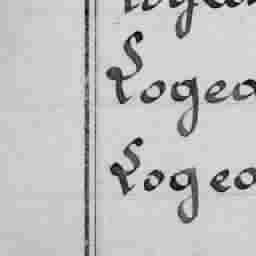 Logeo
Logeo